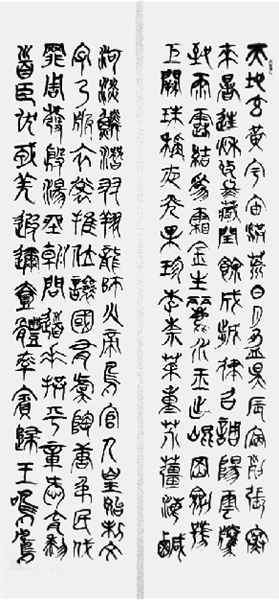 天地玄黃宇宙洪荒日月盈昃辰宿列張寒
來暑往秋收冬藏閏餘成歲律呂調陽雲騰
致雨露結為霜金生麗水玉出崑岡劍號
巨闕珠稱夜光果珍李柰菜重芥薑海鹹
河淡鱗潛羽翔龍師火帝鳥官人皇始制文
字乃服衣裳推位讓國有虞陶唐弔民伐
罪周發殷湯坐朝問道垂拱平章愛育黎
首臣伏戎羌遐邇壹體率賓歸王鳴鳳